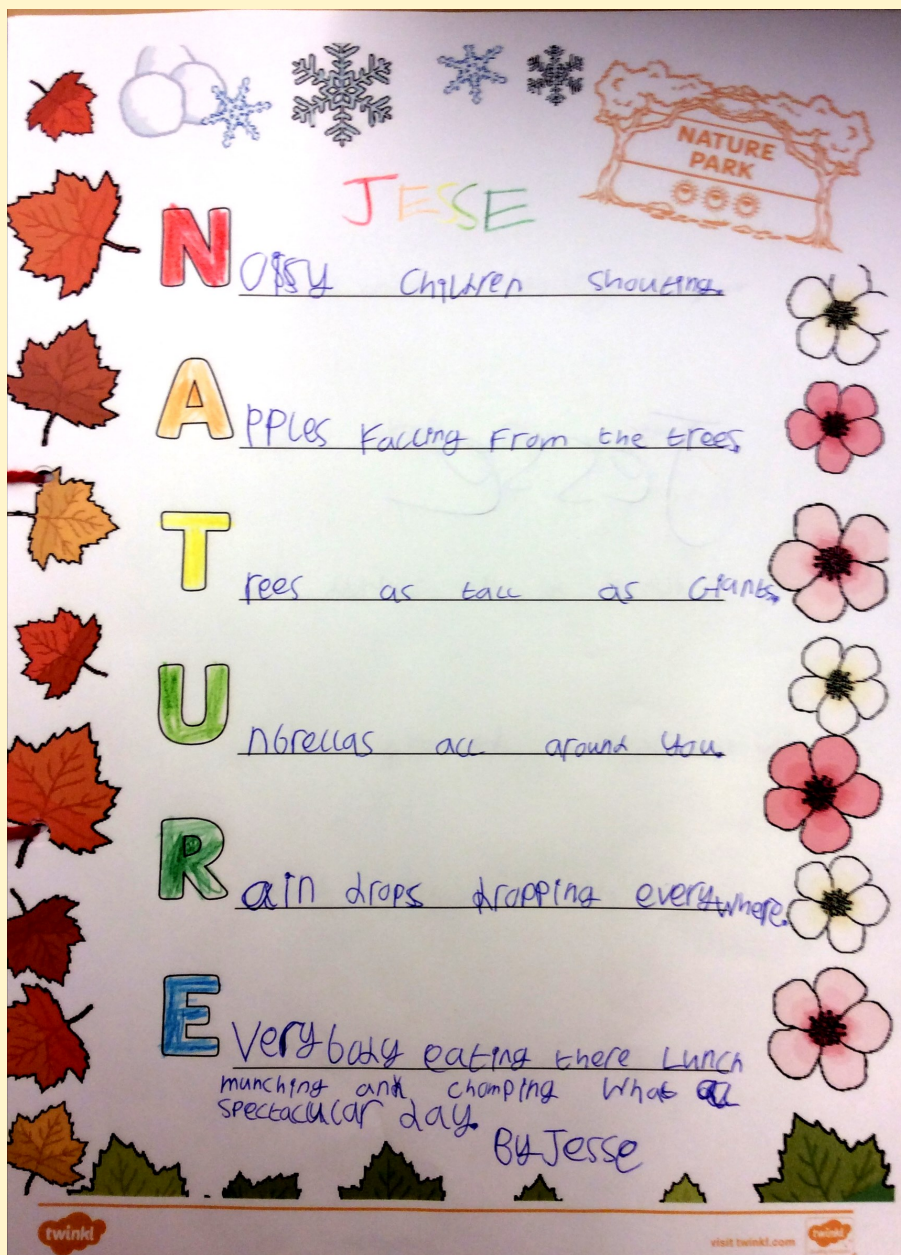 NATURE
PARK
JESSE
Noisy Children shouting.
Apples Falling From the trees.
Trees as tall as Giants.
Unbrellas all around You.
Rain drops dropping everywhere.
Everybody eating there Lunch
munching and chomping What a
spectacular day.
By Jesse
twinkl
visit twinkl.com
twinkl